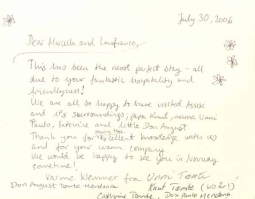 July 30, 2006
Dear Marcella and Lanfranco,
This has been the most perfect stay – all
due to your fantastic hospitality and
friendlyness!
We are all so happy to have visited Assisi
and it's surroundings; papa Knut, mama Unni
Paulo, Cathrine and little Don August.
Thank you for excellent knowledge with us
and for your warm company.
We would be happy to see you in Norway
sometime!
Varme klemmer fra Unni Tomte
Don August Tomte-Mendonca
Knut Tomte
Cathrine Tomte, Don Paulo Mendonca